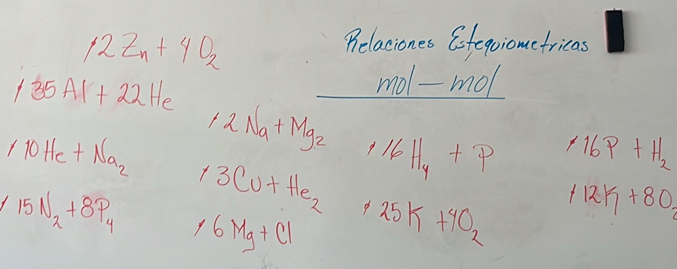 Relaciones Estequiometricas
mol - mol
12 Zn + 4O₂
135 Al + 22He
110 He + Na₂
115 N₂ + 8P₄
12 Na + Mg₂
13 Cu + He₂
16 Mg + Cl
116 H₄ + P
125 K + 4O₂
116 P + H₂
112 K + 8O₂